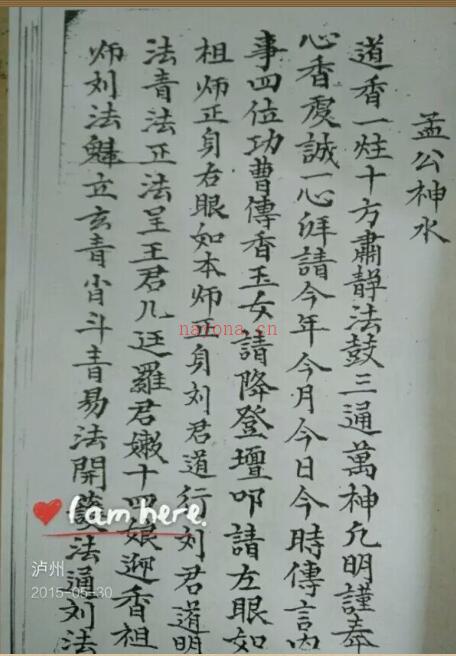 孟公神水
道香一炷十方肅静法鼓三通萬神允明謹奉
心香虔誠一心拜請今年今月今日今時傳言
事四位功曹傳香玉女請降登壇叩請左眼如
祖师正身右眼如本师正身刘君道行刘君道明
法青法正法呈王君凡廷羅君嫩十四娘迎香祖
师刘法魁立玄青肖斗青易法開法通刘法
nayona.cn
I am here.
泸州
2015-05-30